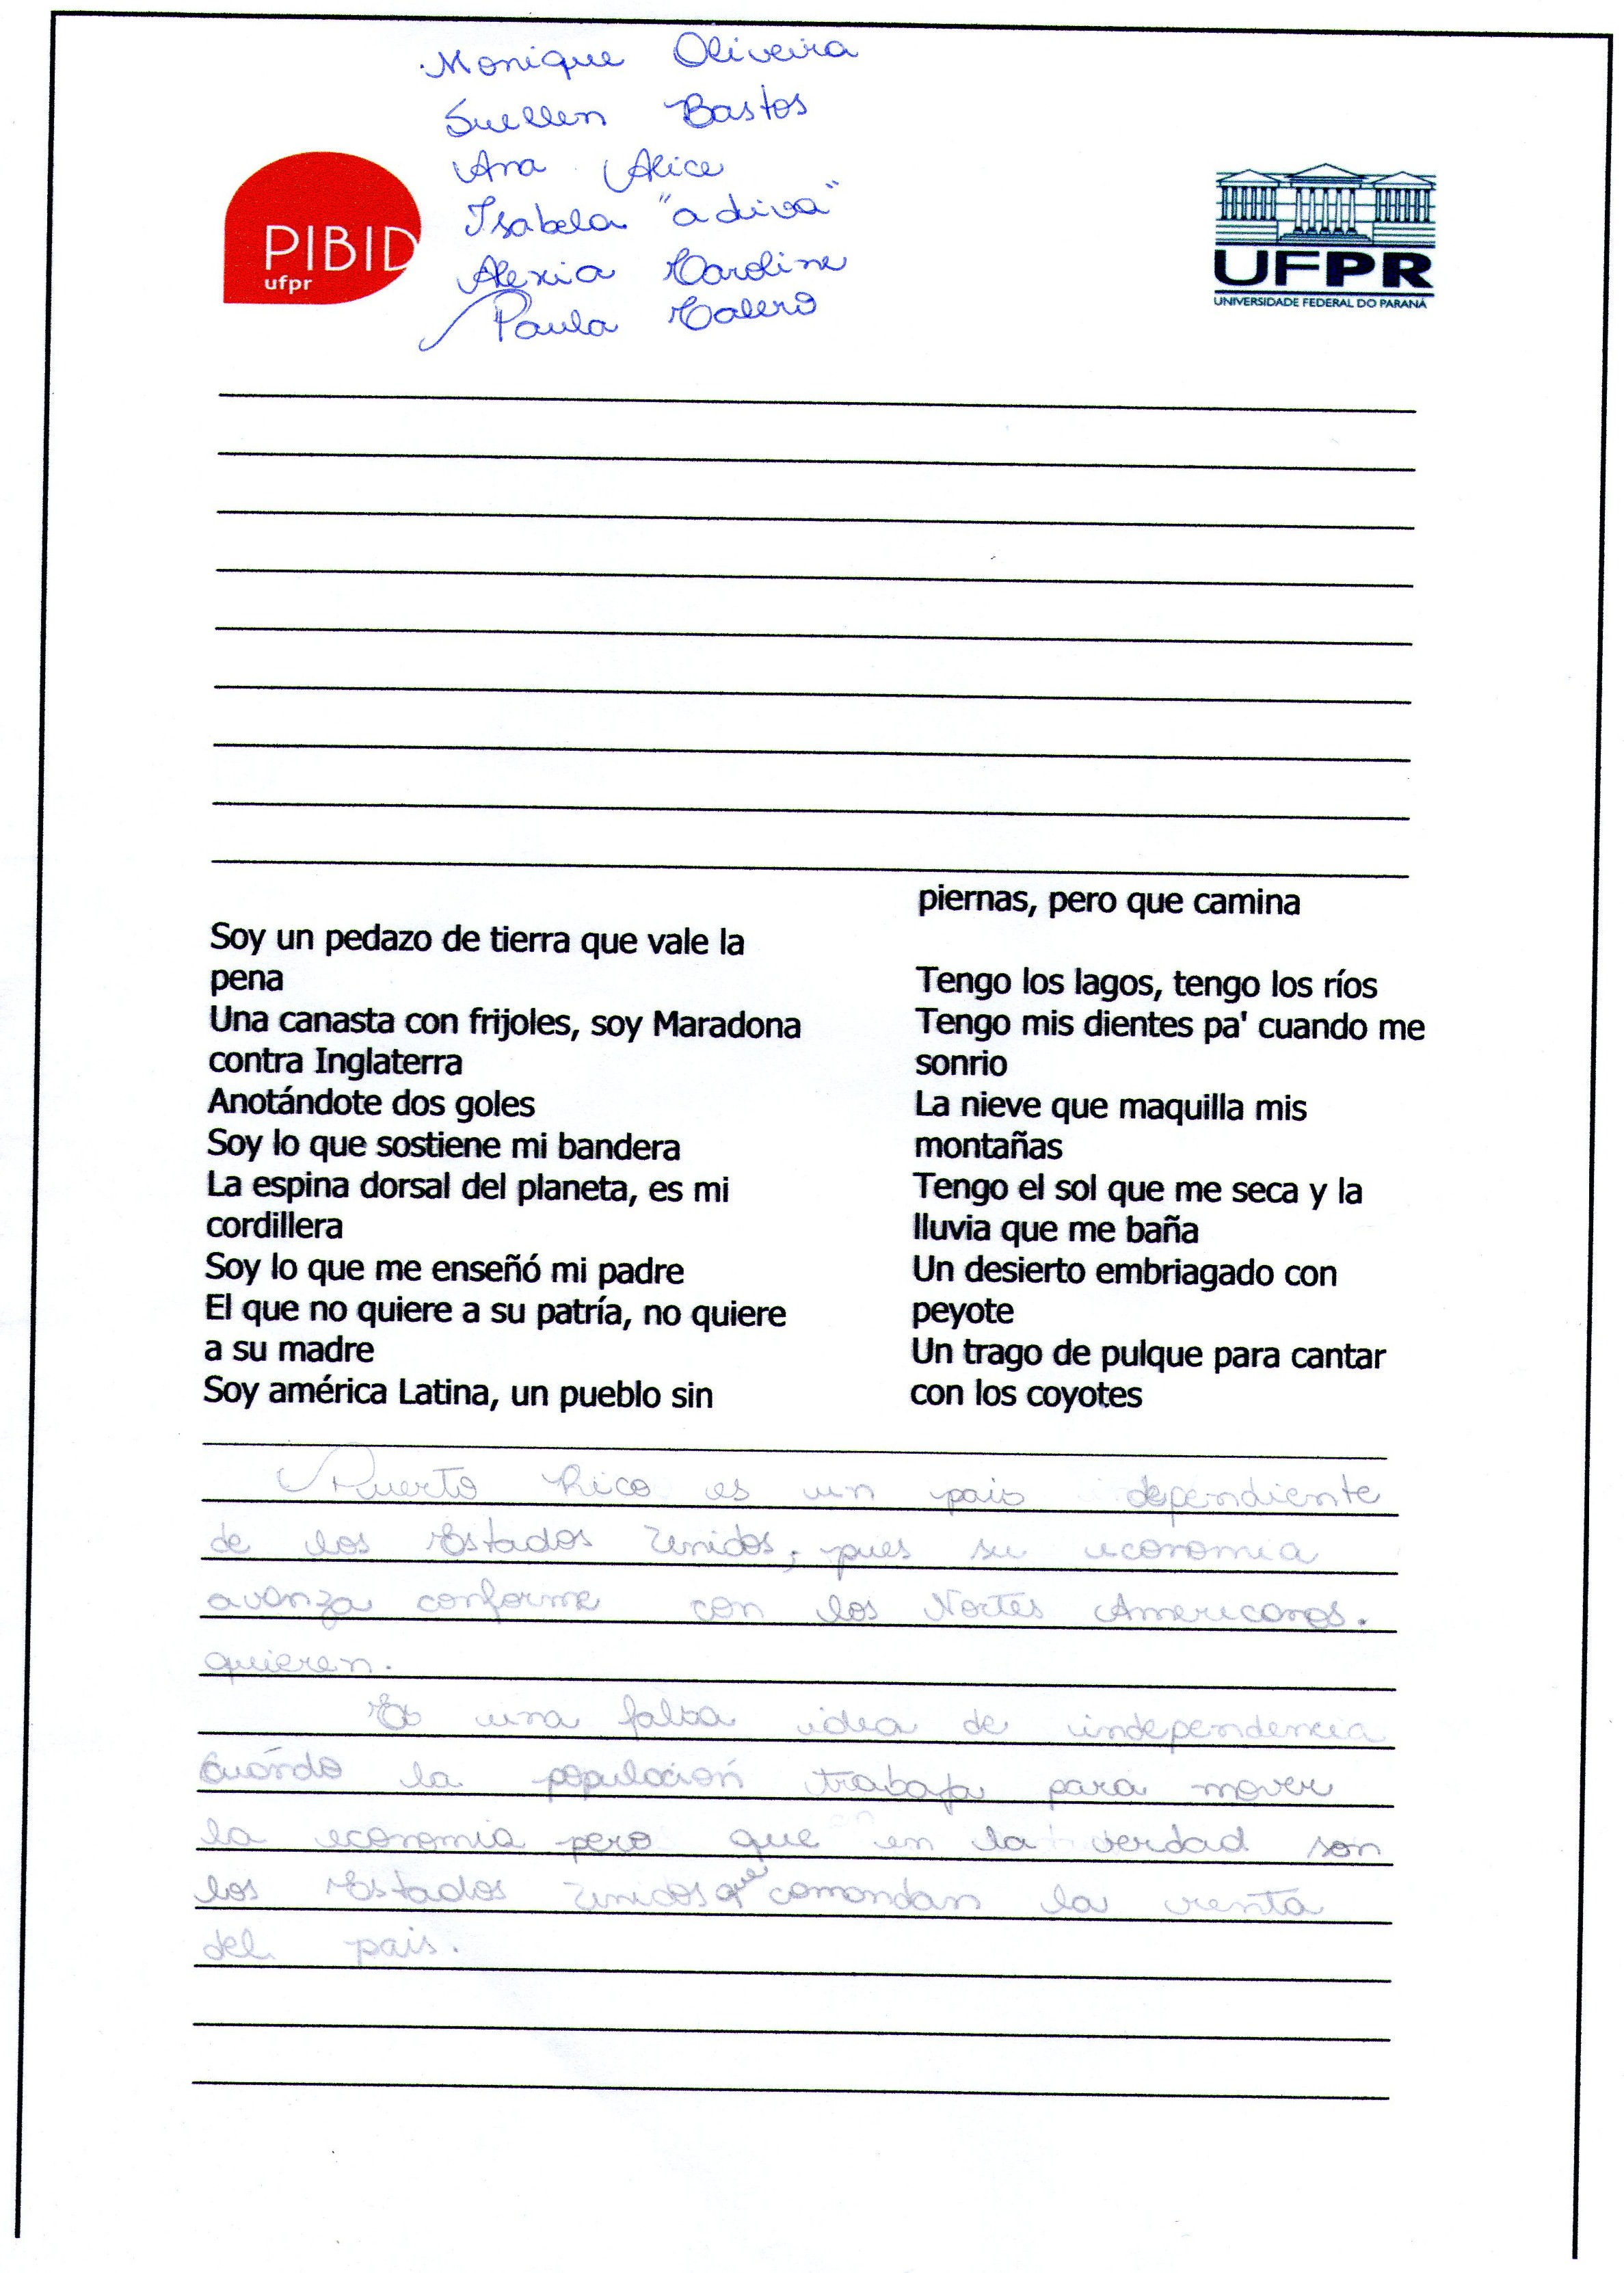 Monique Oliveira
Suellen Bastos
Ana Alice
Isabela "a diva"
Alexia Caroline
Paula Calero
PIBID
ufpr
UFPR
UNIVERSIDADE FEDERAL DO PARANÁ
Soy un pedazo de tierra que vale la
pena
Una canasta con frijoles, soy Maradona
contra Inglaterra
Anotándote dos goles
Soy lo que sostiene mi bandera
La espina dorsal del planeta, es mi
cordillera
Soy lo que me enseñó mi padre
El que no quiere a su patría, no quiere
a su madre
Soy américa Latina, un pueblo sin
piernas, pero que camina
Tengo los lagos, tengo los ríos
Tengo mis dientes pa' cuando me
sonrio
La nieve que maquilla mis
montañas
Tengo el sol que me seca y la
lluvia que me baña
Un desierto embriagado con
peyote
Un trago de pulque para cantar
con los coyotes
Puerto Rico es un pais dependiente
de los Estados Unidos, pues su economia
avanza conforme con los Nortes Americanos.
quieren.
Es una falsa idea de independencia
cuándo la populación trabaja para mover
la economia pero que en la verdad son
los Estados Unidos que comandan la renta
del pais.